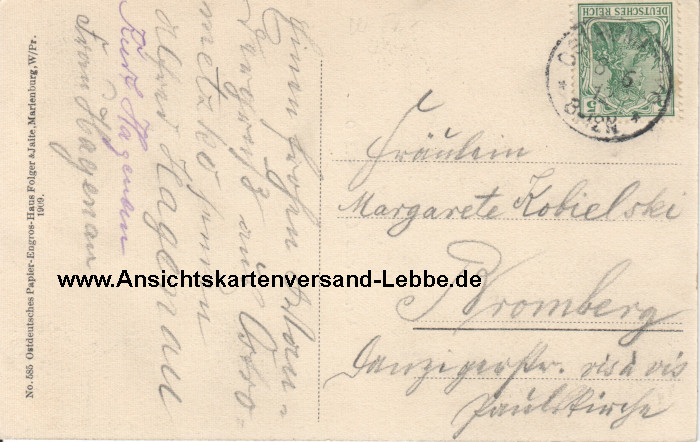 No. 585 Ostdeutsches Papier-Engros-Haus Folger & Jalte, Marienburg, W/Pr.
1909.
Einen frohen
aus Ostro-
metzko
Alfred Hagenau
Kurt Hagenau
Frau Hagenau
DEUTSCHES REICH
5
Fräulein
Margarete Kobielski
Bromberg
Danzigerstr. vis à vis
Paulskirche
www.Ansichtskartenversand-Lebbe.de